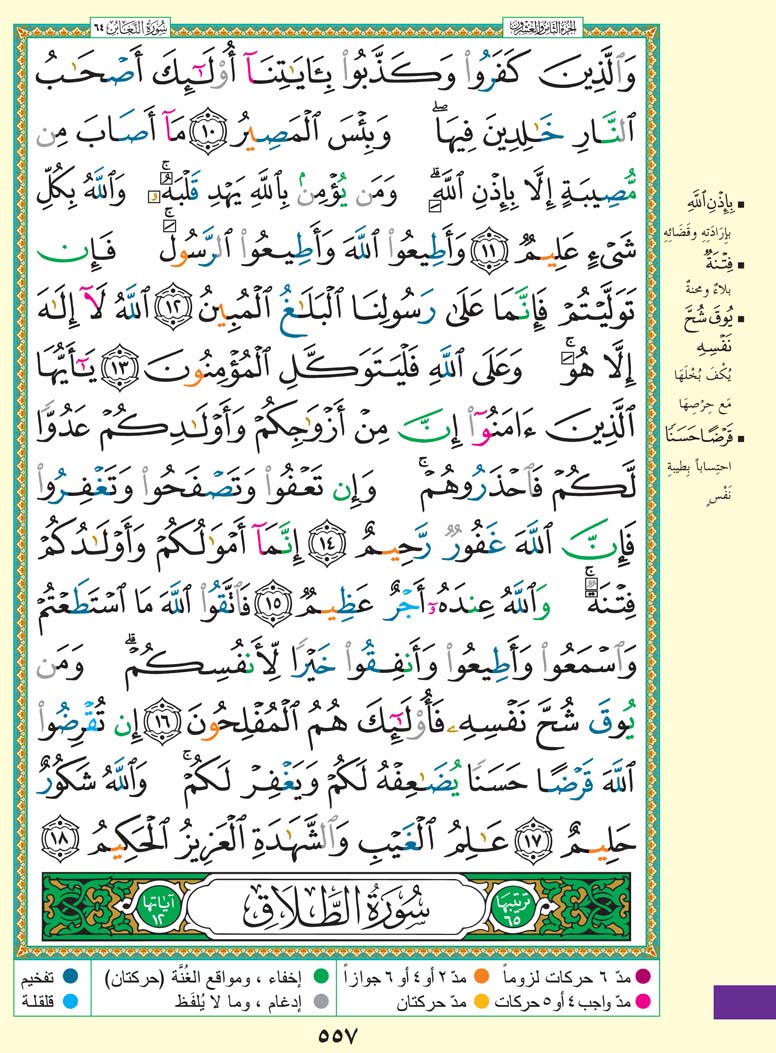 الجزء الثامن والعشرون
سُورَةُ التَّغَابُنِ ٦٤
وَٱلَّذِينَ كَفَرُوا۟ وَكَذَّبُوا۟ بِـَٔايَـٰتِنَآ أُو۟لَـٰٓئِكَ أَصْحَـٰبُ
ٱلنَّارِ خَـٰلِدِينَ فِيهَا ۖ وَبِئْسَ ٱلْمَصِيرُ ١٠ مَآ أَصَابَ مِن
مُّصِيبَةٍ إِلَّا بِإِذْنِ ٱللَّهِ ۗ وَمَن يُؤْمِنۢ بِٱللَّهِ يَهْدِ قَلْبَهُۥ ۚ وَٱللَّهُ بِكُلِّ
شَىْءٍ عَلِيمٌ ١١ وَأَطِيعُوا۟ ٱللَّهَ وَأَطِيعُوا۟ ٱلرَّسُولَ ۚ فَإِن
تَوَلَّيْتُمْ فَإِنَّمَا عَلَىٰ رَسُولِنَا ٱلْبَلَـٰغُ ٱلْمُبِينُ ١٢ ٱللَّهُ لَآ إِلَـٰهَ
إِلَّا هُوَ ۚ وَعَلَى ٱللَّهِ فَلْيَتَوَكَّلِ ٱلْمُؤْمِنُونَ ١٣ يَـٰٓأَيُّهَا
ٱلَّذِينَ ءَامَنُوٓا۟ إِنَّ مِنْ أَزْوَٰجِكُمْ وَأَوْلَـٰدِكُمْ عَدُوًّا
لَّكُمْ فَٱحْذَرُوهُمْ ۚ وَإِن تَعْفُوا۟ وَتَصْفَحُوا۟ وَتَغْفِرُوا۟
فَإِنَّ ٱللَّهَ غَفُورٌ رَّحِيمٌ ١٤ إِنَّمَآ أَمْوَٰلُكُمْ وَأَوْلَـٰدُكُمْ
فِتْنَةٌ ۚ وَٱللَّهُ عِندَهُۥٓ أَجْرٌ عَظِيمٌ ١٥ فَٱتَّقُوا۟ ٱللَّهَ مَا ٱسْتَطَعْتُمْ
وَٱسْمَعُوا۟ وَأَطِيعُوا۟ وَأَنفِقُوا۟ خَيْرًا لِّأَنفُسِكُمْ ۗ وَمَن
يُوقَ شُحَّ نَفْسِهِۦ فَأُو۟لَـٰٓئِكَ هُمُ ٱلْمُفْلِحُونَ ١٦ إِن تُقْرِضُوا۟
ٱللَّهَ قَرْضًا حَسَنًا يُضَـٰعِفْهُ لَكُمْ وَيَغْفِرْ لَكُمْ ۚ وَٱللَّهُ شَكُورٌ
حَلِيمٌ ١٧ عَـٰلِمُ ٱلْغَيْبِ وَٱلشَّهَـٰدَةِ ٱلْعَزِيزُ ٱلْحَكِيمُ ١٨
ترتيبها ٦٥
سُورَةُ الطَّلَاقِ
آياتها ١٢
▪ بِإِذْنِ ٱللَّهِ
بإرادَتِهِ وقَضَائِهِ
▪ فِتْنَةٌ
بلاءٌ ومحنةٌ
▪ يُوقَ شُحَّ
نَفْسِهِ
يُكْفَ بُخْلَهَا
مَع حِرْصِهَا
▪ قَرْضًا حَسَنًا
احتِساباً بِطيبةِ
نَفْسٍ
مدّ ٦ حركات لزوماً
مدّ ٢ أو ٤ أو ٦ جوازاً
إخفاء ، ومواقع الغُنَّة (حركتان)
تفخيم
مدّ واجب ٤ أو ٥ حركات
مدّ حركتان
إدغام ، وما لا يُلفَظ
قلقلة
٥٥٧